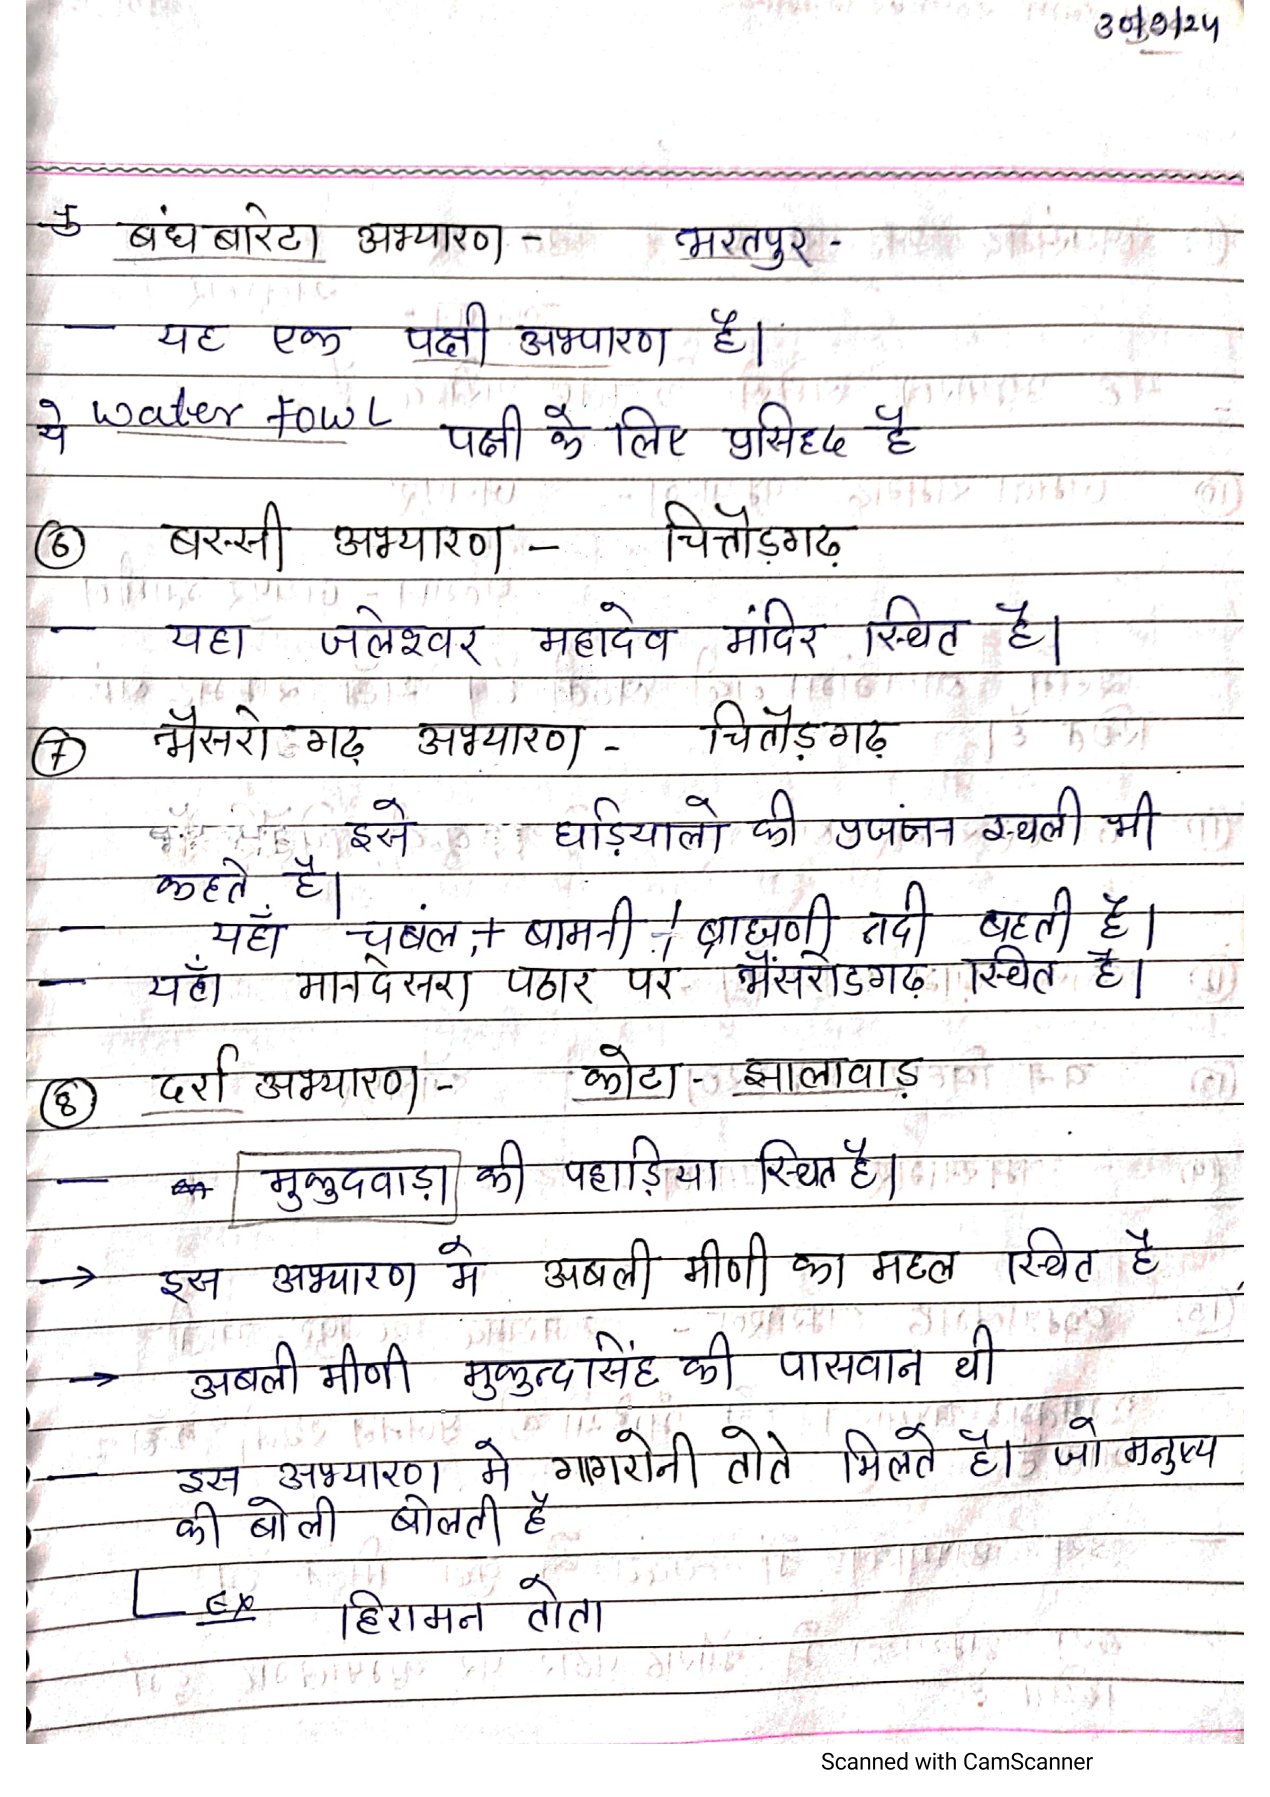 30/9/24
बंध बारेटा अभ्यारण - भरतपुर -
— यह एक पक्षी अभ्यारण है।
ये water fowl पक्षी के लिए प्रसिद्द है
⑥ बस्सी अभ्यारण - चित्तौड़गढ़
— यहा जलेश्वर महादेव मंदिर स्थित है।
⑦ भैसरो गढ़ अभ्यारण - चितौड़गढ़
इसे घड़ियालो की प्रजंजन स्थली भी
कहते है।
— यहाँ चबंल, + बामनी / ब्राह्मणी नदी बहती है।
— यहाँ मानदेसरा पठार पर भैंसरोडगढ़ स्थित है।
⑧ दर्रा अभ्यारण - कोटा - झालावाड़
— मुकुदवाड़ा की पहाड़िया स्थित है।
→ इस अभ्यारण मे अबली मीणी का महल स्थित है
→ अबली मीणी मुकुन्दसिंह की पासवान थी
— इस अभ्यारण मे गागरोनी तोते मिलते है। जो मनुष्य
की बोली बोलती है
Ex हिरामन तोता
Scanned with CamScanner